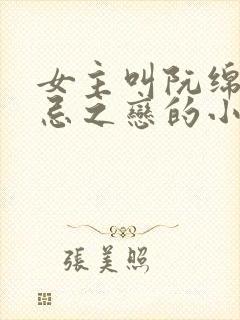 女主叫阮绵
忌之戀的小
張美照